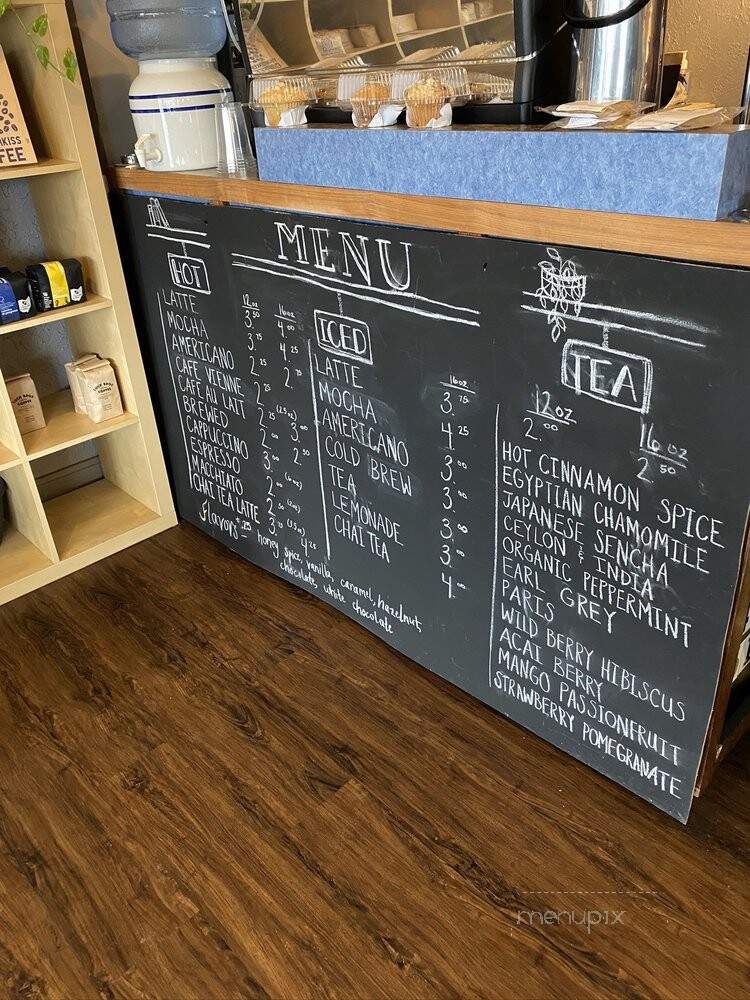 KISS
FEE
MENU
HOT
12oz 16oz
LATTE 3.50 4.00
MOCHA 3.75 4.25
AMERICANO 2.25
CAFE VIENNE
CAFE AU LAIT
BREWED
CAPPUCCINO
ESPRESSO
MACCHIATO
CHAI TEA LATTE 4.25
Flavors .25 honey spice, vanilla, caramel, hazelnut,
chocolate, white chocolate
ICED
16oz
LATTE 3.75
MOCHA 4.25
AMERICANO 3.00
COLD BREW 3.00
TEA 3.00
LEMONADE 3.00
CHAI TEA 4.00
TEA
12oz 16oz
2.00 2.50
HOT CINNAMON SPICE
EGYPTIAN CHAMOMILE
JAPANESE SENCHA
CEYLON & INDIA
ORGANIC PEPPERMINT
EARL GREY
PARIS
WILD BERRY HIBISCUS
ACAI BERRY
MANGO PASSIONFRUIT
STRAWBERRY POMEGRANATE
menupix